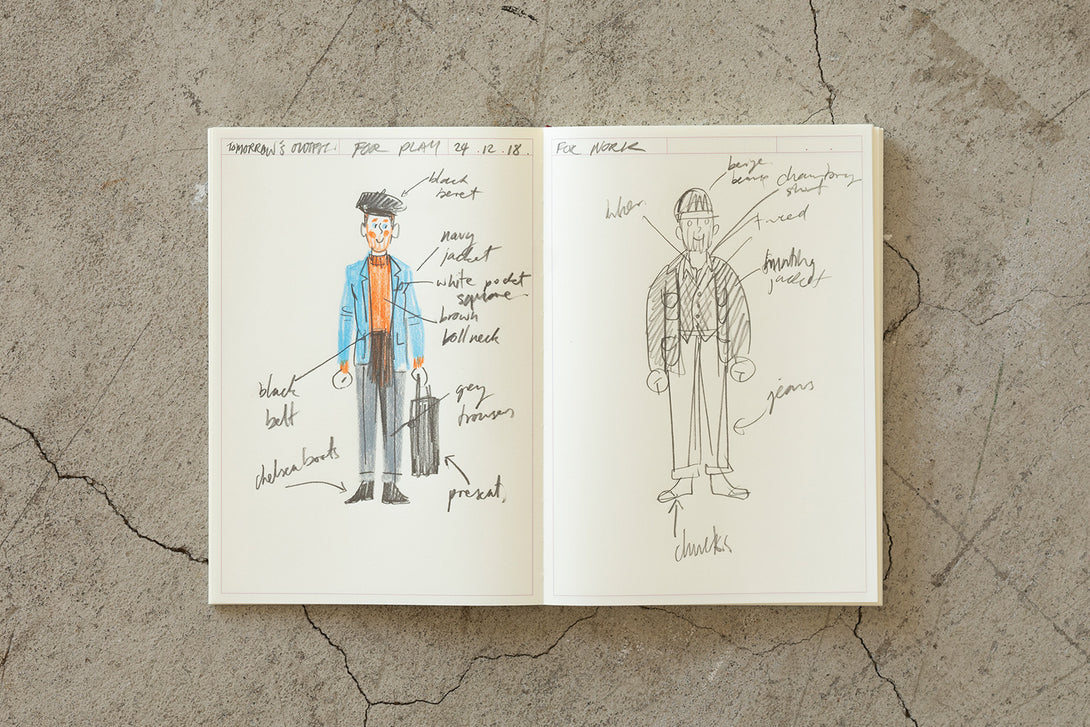 TOMORROW'S OUTFIT. FOR PLAY 24.12.18.
black
beret
navy
jacket
white pocket
square
brown
rollneck
black
belt
grey
trousers
chelsea boots
present
FOR WORK
beige
chambray
shirt
jacket
jeans
chucks